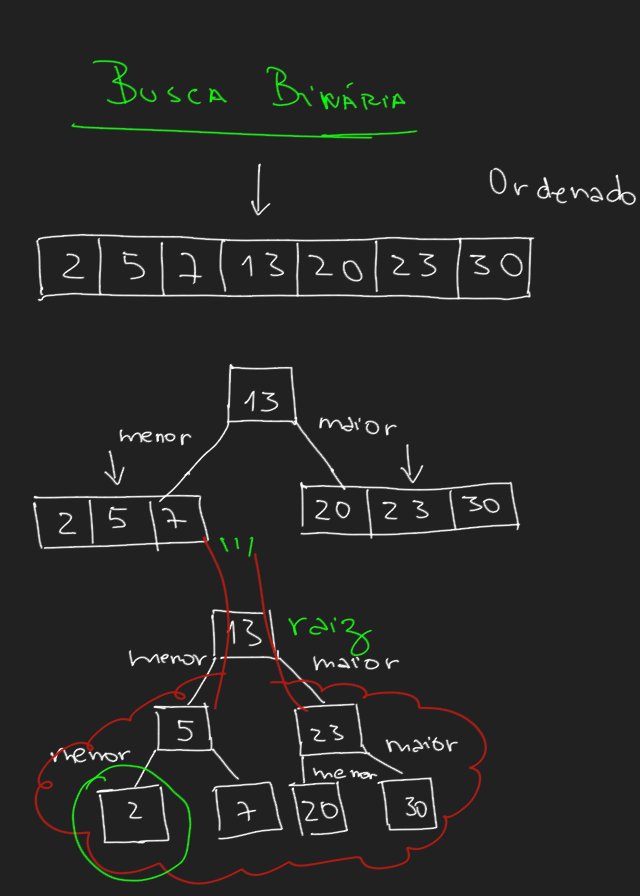 BUSCA BINÁRIA
Ordenado
2 5 7 13 20 23 30
13
menor maior
2 5 7 20 23 30
13 raiz
menor maior
5 23
menor maior
menor
2 7 20 30